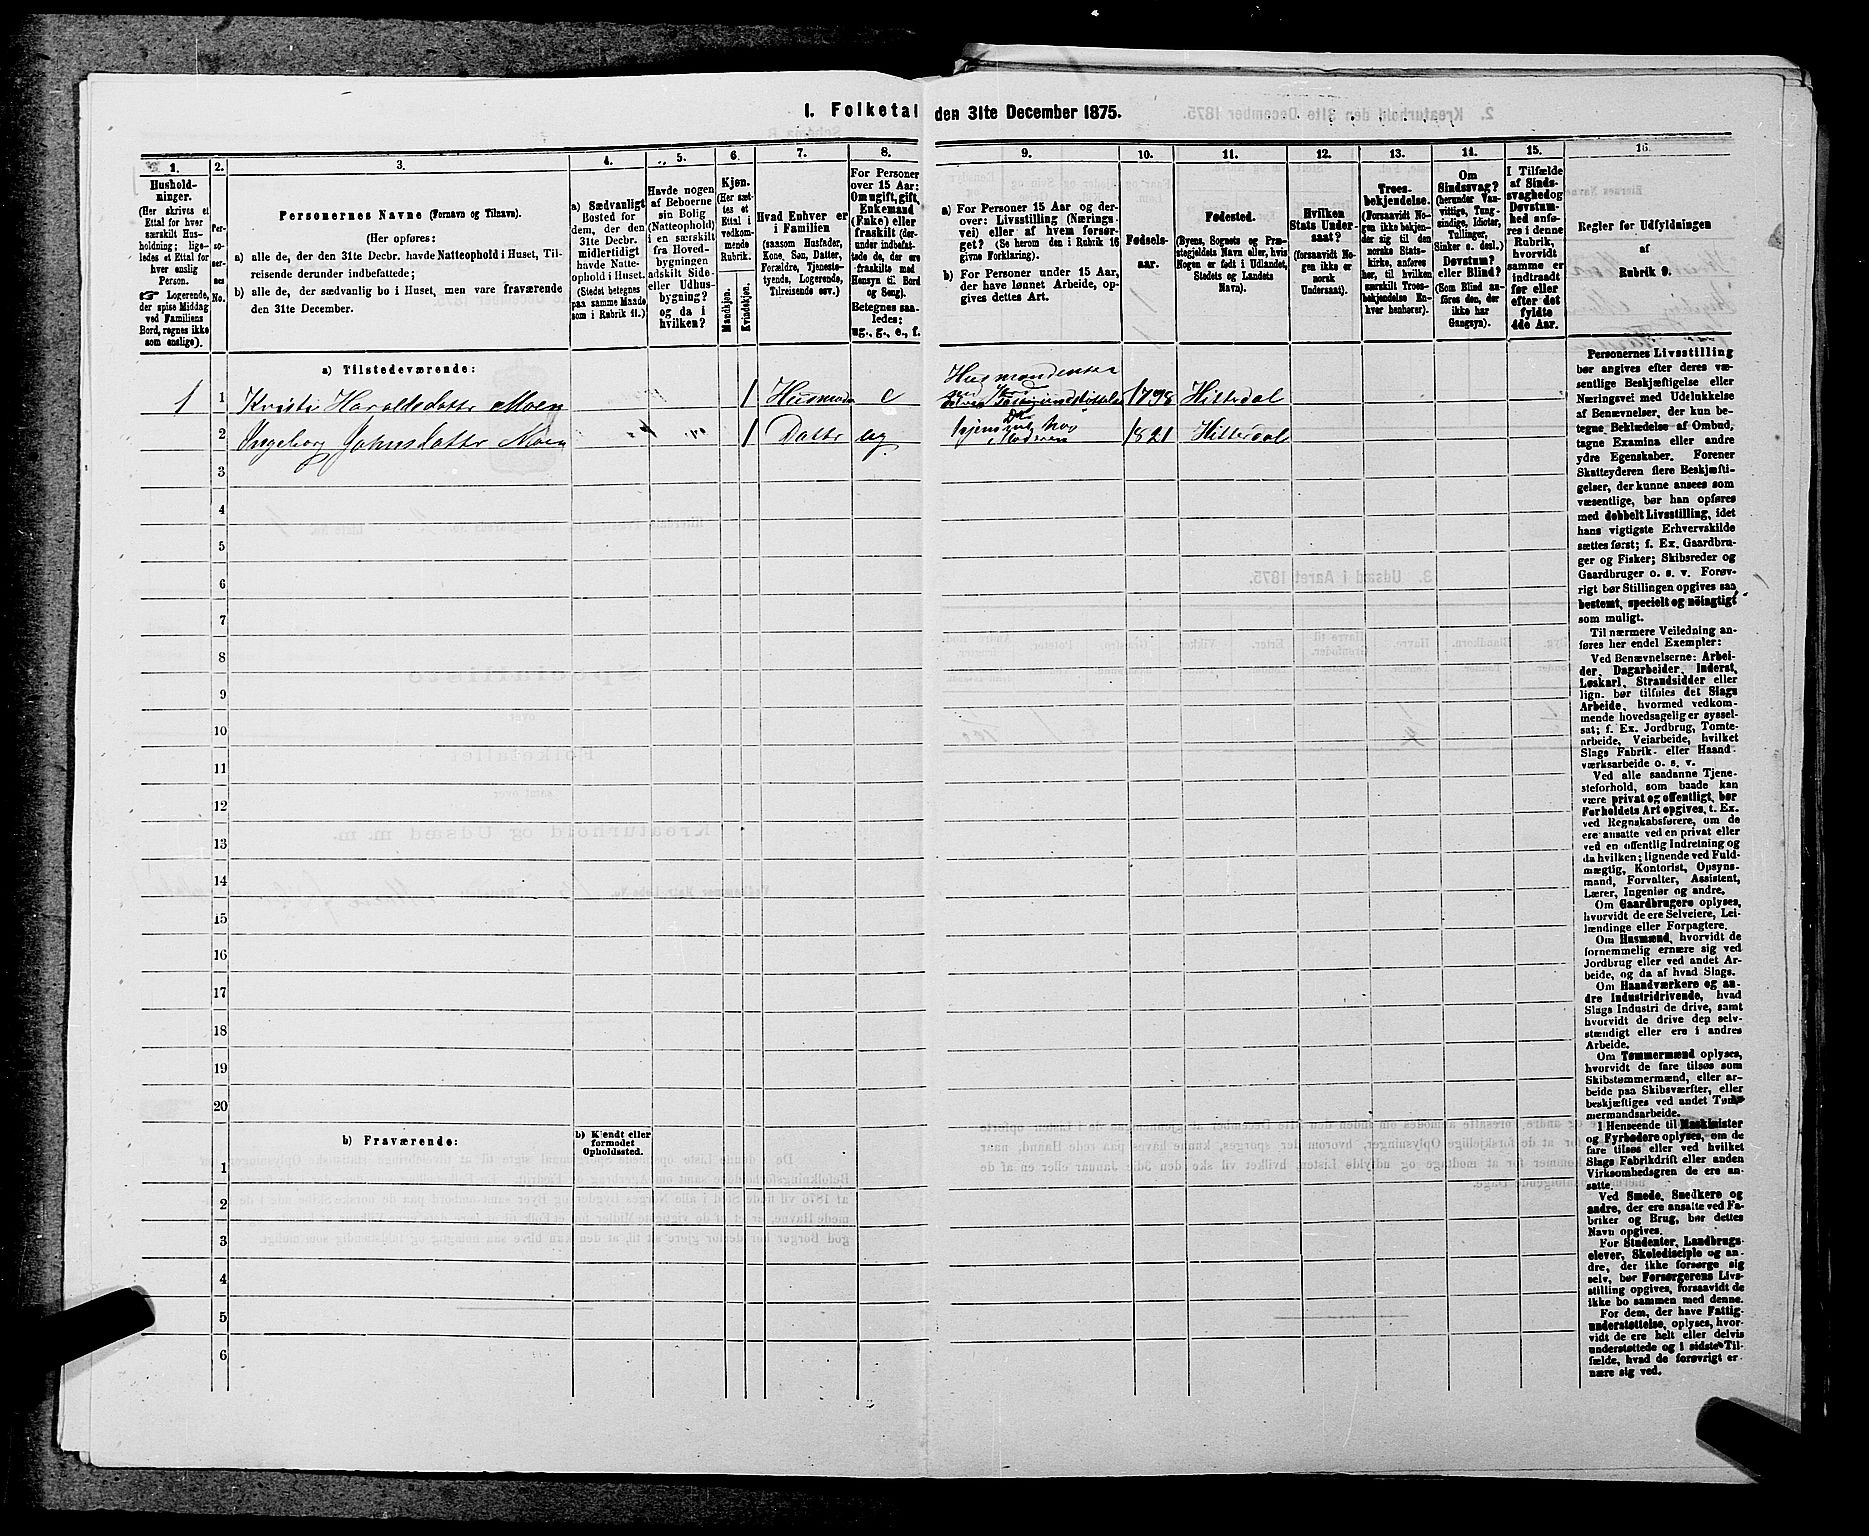 1. Folketal den 31te December 1875.
1. 2. 3. 4. 5. 6. 7. 8. 9. 10. 11. 12. 13. 14. 15. 16.
Hushold-
ninger.
(Her skrives et
Ettal for hver
særskilt Hus-
holdning; lige-
ledes et Ettal for
hver enslig
Person.
☞ Logerende,
der spise Middag
ved Familiens
Bord, regnes ikke
som enslige).
Per-
so-
ner-
nes
No.
Personernes Navne (Fornavn og Tilnavn).
(Her opføres:
a) alle de, der den 31te Decbr. havde Natteophold i Huset, Til-
reisende derunder indbefattede;
b) alle de, der sædvanlig bo i Huset, men vare fraværende
den 31te December.
a) Sædvanligt
Bosted for
dem, der den
31te Decbr.
midlertidigt
havde Natte-
ophold i Huset.
(Stedet betegnes
paa samme Maade
som i Rubrik 11.)
Havde nogen
af Beboerne
sin Bolig
(Natteophold)
i en særskilt
fra Hoved-
bygningen
adskilt Side-
eller Udhus-
bygning?
og da i
hvilken?
Kjøn.
(Her sæt-
tes et
Ettal i
vedkom-
mende
Rubrik.
Mandkjøn.
Kvindekjøn.
Hvad Enhver er
i Familien
(saasom Husfader,
Kone, Søn, Datter,
Forældre, Tjeneste-
tyende, Logerende,
Tilreisende osv.)
For Personer
over 15 Aar:
Om ugift, gift,
Enkemand
(Enke) eller
fraskilt (der-
under indbefat-
tede de, der ere
fraskilte med
Hensyn til Bord
og Seng).
Betegnes saa-
ledes:
ug., g., e., f.
a) For Personer 15 Aar og der-
over: Livsstilling (Nærings-
vei) eller af hvem forsør-
get? (Se herom den i Rubrik 16
givne Forklaring).
b) For Personer under 15 Aar,
der have lønnet Arbeide, op-
gives dettes Art.
Fødsels-
aar.
Fødested.
(Byens, Sognets og Præ-
stegjeldets Navn eller, hvis
Nogen er født i Udlandet,
Stedets og Landets
Navn).
Hvilken
Stats Under-
saat?
(forsaavidt No-
gen ikke er
norsk
Undersaat).
Troes-
bekjendelse.
(Forsaavidt No-
gen ikke bekjen-
der sig til den
norske Stats-
kirke, anføres
her, til hvilken
særskilt Troes-
bekjendelse En-
hver henhører).
Om
Sindssvag?
(herunder Van-
vittige, Tung-
sindige, Idioter,
Tullinger,
Sinker o. desl.)
Døvstum?
eller Blind?
(Som Blind an-
føres den, der
ikke har
Gangsyn).
I Tilfælde
af Sinds-
svaghed og
Døvstum-
hed anfø-
res i denne
Rubrik,
hvorvidt
samme er
indtraadt
før eller
efter det
fyldte
4de Aar.
Regler for Udfyldningen
af
Rubrik 9.
a) Tilstedeværende:
1 1 Kristi Haraldsdatter Moen 1 Husmoder e Husmandsenke 1798 Hitterdal
2 Ingeborg Johnsdatter Moen 1 Datter ug hos Moderen 1821 Hitterdal
3
4
5
6
7
8
9
10
11
12
13
14
15
16
17
18
19
20
b) Fraværende:
b) Kjendt eller
formodet
Opholdssted.
1
2
3
4
5
6
Personernes Livsstilling
bør angives efter deres væ-
sentlige Beskjæftigelse eller
Næringsvei med Udelukkelse
af Benævnelser, der kun be-
tegne Beklædelse af Ombud,
tagne Examina eller andre
ydre Egenskaber. Forener
Skatteyderen flere Beskjæfti-
gelser, der kunne ansees som
væsentlige, bør han opføres
med dobbelt Livsstilling, idet
hans vigtigste Erhvervskilde
sættes først; f. Ex. Gaardbru-
ger og Fisker; Skibsreder og
Gaardbruger o. s. v. Forøv-
rigt bør Stillingen opgives saa
bestemt, specielt og nöiagtigt
som muligt.
Til nærmere Veiledning an-
føres her endel Exempler:
Ved Benævnelserne: Arbei-
der, Dagarbeider, Inderst,
Løskarl, Strandsidder eller
lign. bør tilføies det Slags
Arbeide, hvormed vedkom-
mende hovedsagelig er syssel-
sat; f. Ex. Jordbrug, Tomte-
arbeide, Veiarbeide, hvilket
Slags Fabrik- eller Haand-
værksarbeide o. s. v.
Ved alle saadanne Tjene-
steforhold, som baade kan
være privat og offentligt, bør
Forholdets Art opgives, t. Ex.
ved Regnskabsførere, om de
ere ansatte ved en privat eller
ved en offentlig Indretning og
da hvilken; lignende ved Fuld-
mægtig, Kontorist, Opsyns-
mand, Forvalter, Assistent,
Lærer, Ingeniør og andre.
Om Gaardbrugere oplyses,
hvorvidt de ere Selveiere, Lei-
lændinge eller Forpagtere.
Om Husmænd, hvorvidt de
fornemmelig ernære sig ved
Jordbrug eller ved andet Ar-
beide, og da af hvad Slags.
Om Haandværkere og an-
dre Industridrivende, hvad
Slags Industri de drive, samt
hvorvidt de drive den selv-
stændigt eller ere i andres
Arbeide.
Om Tømmermænd oplyses,
hvorvidt de fare tilsøs som
Skibstømmermænd, eller ar-
beide paa Skibsværfter, eller
beskjæftiges ved andet Tøm-
mermandsarbeide.
I Henseende til Maskinister
og Fyrbødere oplyses, om de
fare tilsøs eller ved hvilket
Slags Fabrikdrift eller anden
Virksomhedsgren de ere an-
satte.
Ved Smede, Snedkere og
andre, der ere ansatte ved Fa-
briker og Brug, bør dettes
Navn opgives.
For Studenter, Landbrugs-
elever, Skoledisciple og an-
dre, der ikke forsørge sig
selv, bør Forsørgerens Livs-
stilling opgives, forsaavidt de
ikke bo sammen med denne.
For dem, der have Fattig-
understøttelse, oplyses, hvor-
vidt de ere helt eller delvis
understøttede og i sidste Til-
fælde, hvad de forøvrigt er-
nære sig ved.